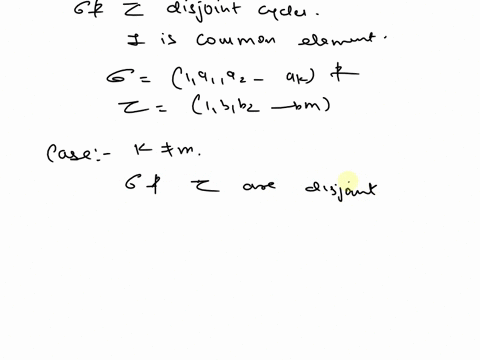 σ & τ disjoint cycles.
1 is common element.
σ = (1, a1, a2 - ak) &
τ = (1, b1 b2 — bm)
Case:- K ≠ m.
σ & τ are disjoint